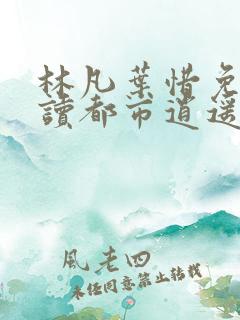 林凡葉惜免
讀都市逍遥
風老四
未经同意禁止转载